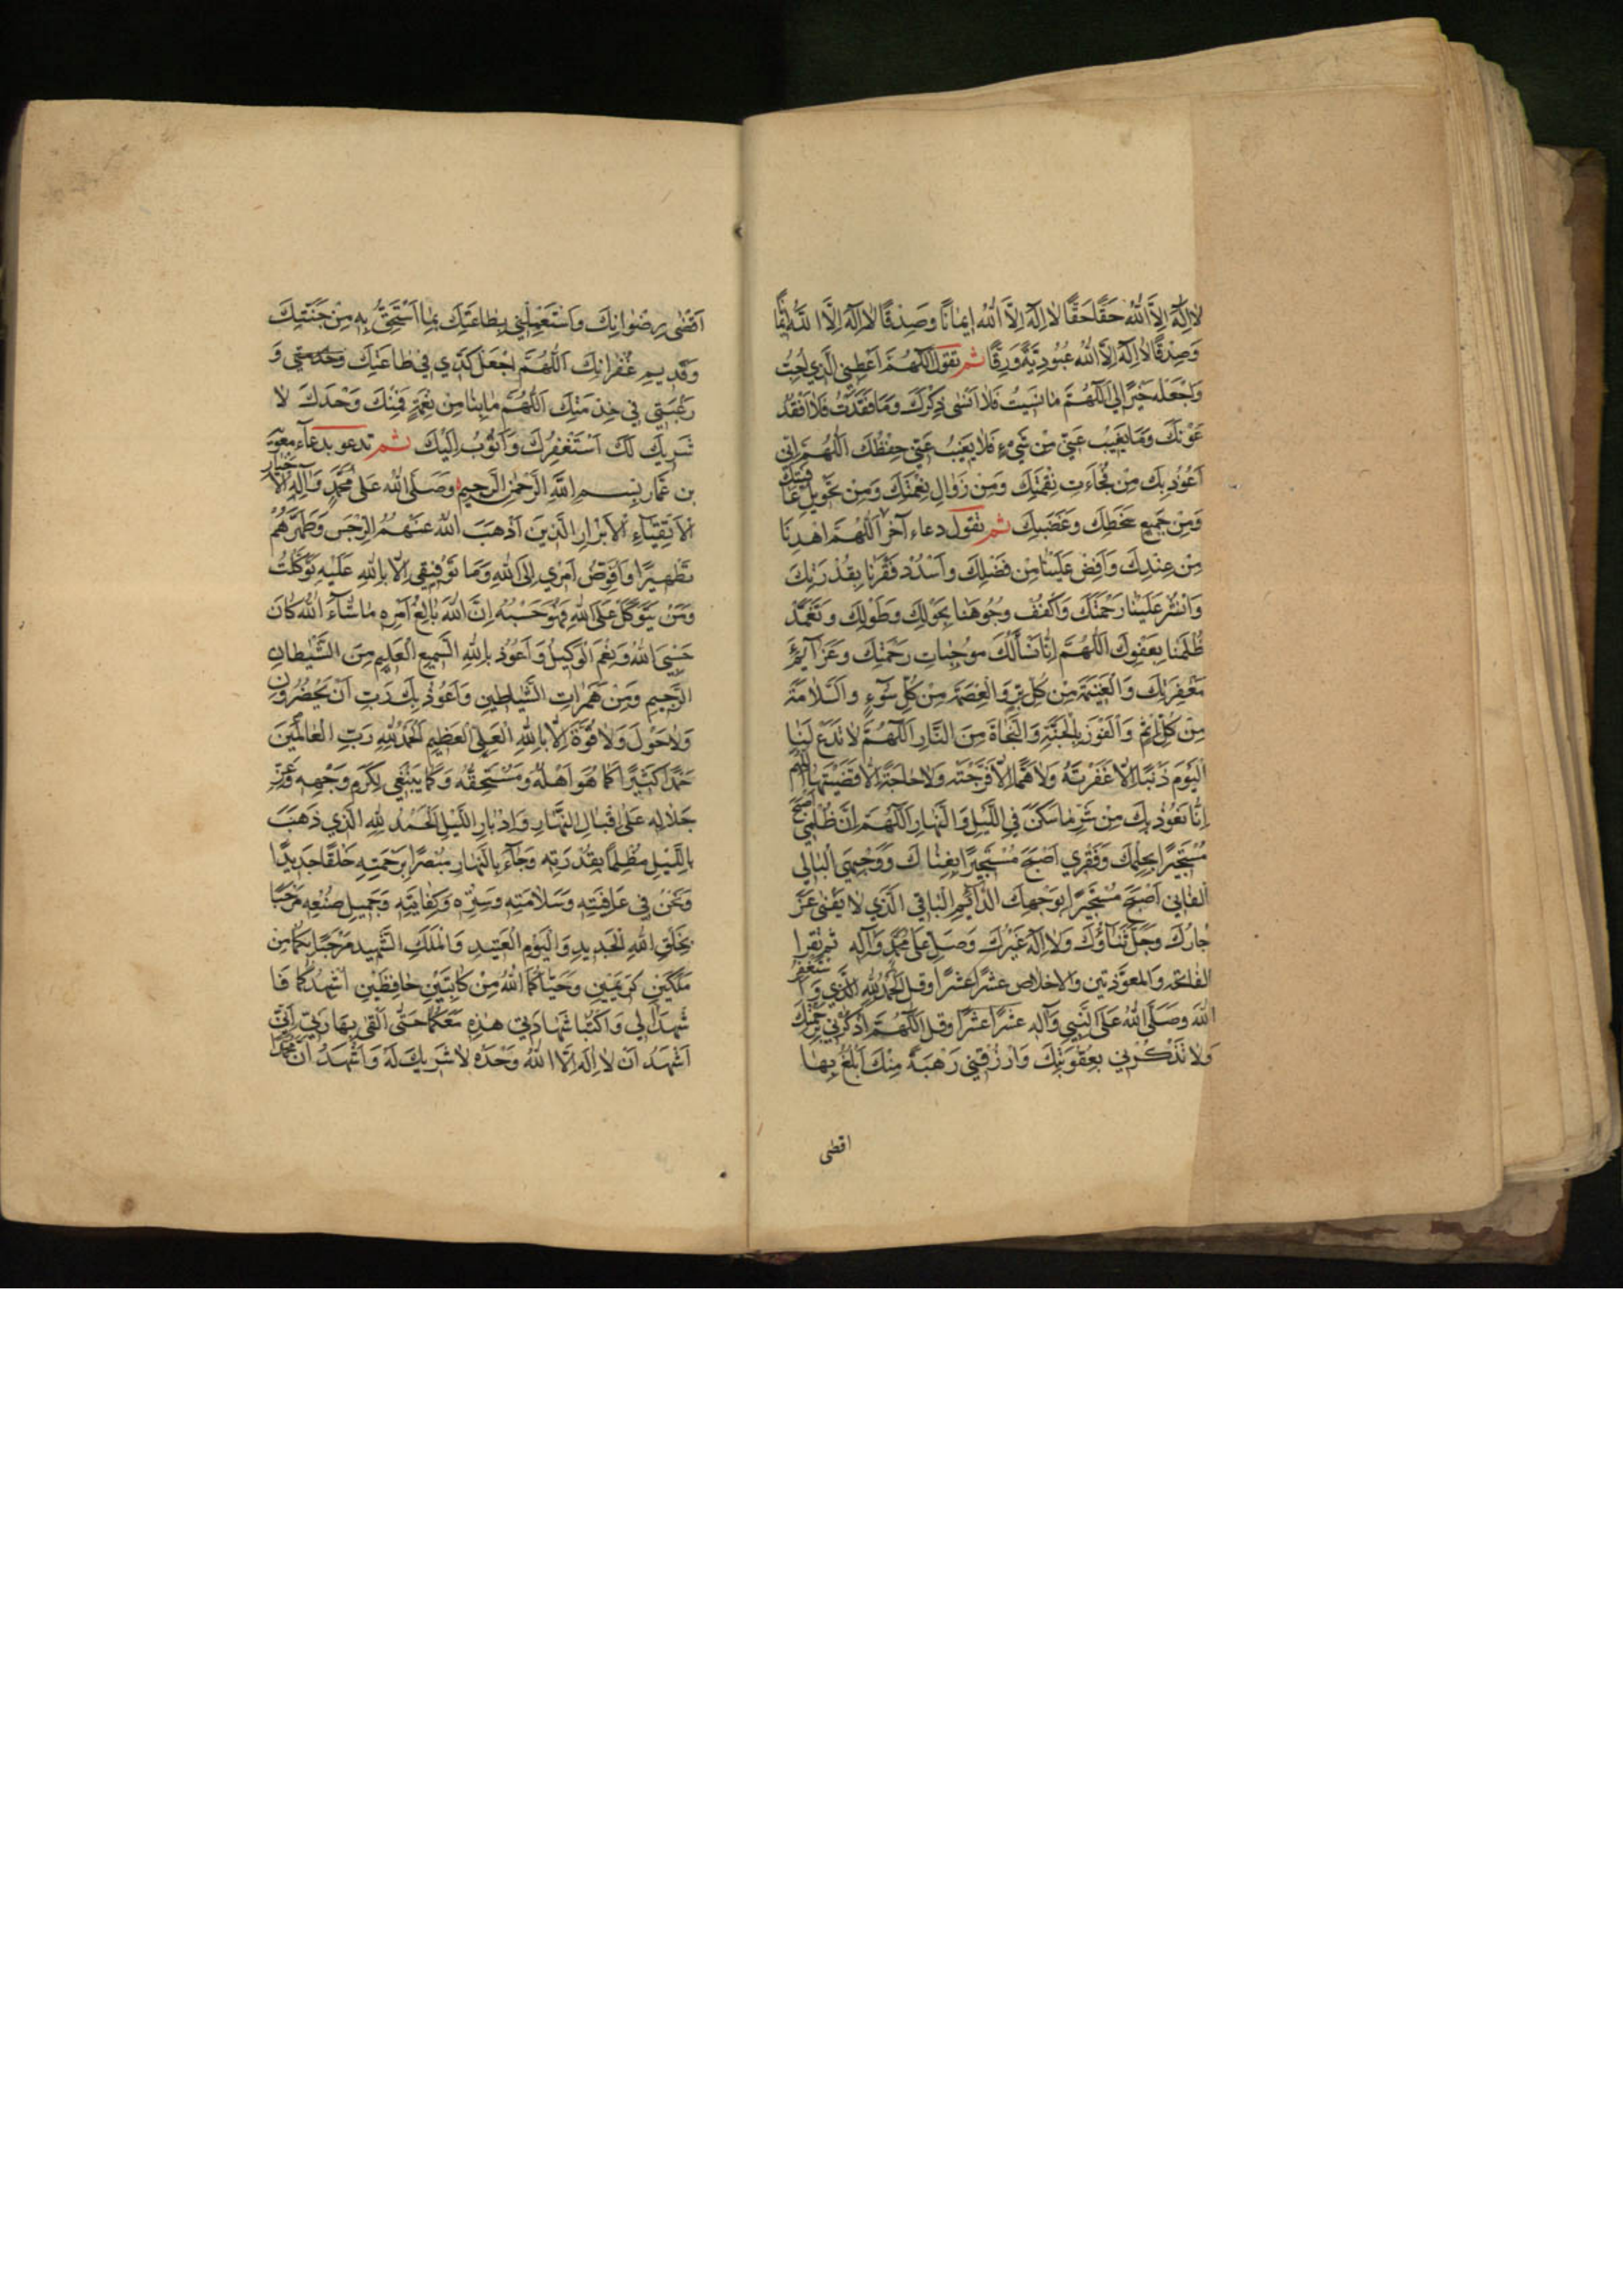 لا اِلهَ اِلاَّ اللهُ حَقًّا حَقًّا لا اِلهَ اِلاَّ اللهُ اِيمانًا وَصِدْقًا لا اِلهَ اِلاَّ اللهُ
وَصِدْقًا لا اِلهَ اِلاَّ اللهُ عُبُودِيَّةً وَرِقًّا ثم تقول اَللّهُمَّ اَعْطِنِي الَّذِي اُحِبُّ
وَاجْعَلْهُ خَيْرًا لِي اَللّهُمَّ ما نَسِيتُ فَلا اَنْسى ذِكْرَكَ وَما فَقَدْتُ فَلا اَفْقِدُ
عَوْنَكَ وَما يَغِيبُ عَنِّي مِنْ شَيْءٍ فَلا يَغِيبُ عَنِّي حِفْظُكَ اَللّهُمَّ اِنِّي
اَعُوذُ بِكَ مِنْ فُجَاءَتِ نِقْمَتِكَ وَمِنْ زَوالِ نِعْمَتِكَ وَمِنْ تَحْوِيلِ عافِيَتِكَ
وَمِنْ جَمِيعِ سَخَطِكَ وَغَضَبِكَ ثم تقول دعاء آخر اَللّهُمَّ اهْدِنا
مِنْ عِنْدِكَ وَاَفِضْ عَلَيْنا مِنْ فَضْلِكَ وَاسْدُدْ فَقْرَنا بِقُدْرَتِكَ
وَانْشُرْ عَلَيْنا رَحْمَتَكَ وَاكْفُفْ وُجُوهَنا بِحَوْلِكَ وَطَوْلِكَ وَتَغَمَّدْ
ظُلْمَنا بِعَفْوِكَ اَللّهُمَّ اِنّا نَسْأَلُكَ مُوجِباتِ رَحْمَتِكَ وَعَزآئِمَ
مَغْفِرَتِكَ وَالْغَنِيمَةَ مِنْ كُلِّ بِرٍّ وَالْعِصْمَةَ مِنْ كُلِّ سُوءٍ وَالسَّلامَةَ
مِنْ كُلِّ اِثْمٍ وَالْفَوْزَ بِالْجَنَّةِ وَالنَّجاةَ مِنَ النّارِ اَللّهُمَّ لا تَدَعْ لَنا
الْيَوْمَ ذَنْبًا اِلاّ غَفَرْتَهُ وَلا هَمًّا اِلاّ فَرَّجْتَهُ وَلا حاجَةً اِلاّ قَضَيْتَها اللهم
اِنّا نَعُوذُ بِكَ مِنْ شَرِّ ما سَكَنَ فِي اللَّيْلِ وَالنَّهارِ اَللّهُمَّ اِنَّ ظُلْمِي اَصْبَحَ
مُسْتَجِيرًا بِحِلْمِكَ وَفَقْرِي اَصْبَحَ مُسْتَجِيرًا بِغِناكَ وَوَجْهِيَ الْبالِي
الْفانِي اَصْبَحَ مُسْتَجِيرًا بِوَجْهِكَ الدّآئِمِ الْباقِي الَّذِي لا يَفْنى عَزَّ
جارُكَ وَجَلَّ ثَنآؤُكَ وَلا اِلهَ غَيْرُكَ وَصَلِّ عَلى مُحَمَّدٍ وَآلِهِ ثم تقرا
الفاتحه والمعوّذتين والاخلاص عشرًا عشرًا وقل الحَمْدُ لِلّهِ الَّذِي وَاَسْتَغْفِرُ
اللهَ وَصَلَّى اللهُ عَلَى النَّبِيِّ وَآلِهِ عَشْرًا عَشْرًا وقل اَللّهُمَّ اذْكُرْنِي بِرَحْمَتِكَ
وَلا تَذْكُرْنِي بِعُقُوبَتِكَ وَارْزُقْنِي رَهْبَةً مِنْكَ اَبْلُغُ بِها
اقصى
اَقْصى رِضْوانِكَ وَاسْتَعْمِلْنِي بِطاعَتِكَ بِما اَسْتَحِقُّ بِهِ مِنْ جَنَّتِكَ
وَقَدِيمِ غُفْرانِكَ اَللّهُمَّ اجْعَلْ كَدِّي فِي طاعَتِكَ وَ
رَغْبَتِي فِي خِدْمَتِكَ اَللّهُمَّ ما بِنا مِنْ نِعْمَةٍ فَمِنْكَ وَحْدَكَ لا
شَرِيكَ لَكَ اَسْتَغْفِرُكَ وَاَتُوبُ اِلَيْكَ ثم تدعو بدعآء معوية
بن عمار بِسْمِ اللهِ الرَّحْمنِ الرَّحِيمِ وَصَلَّى اللهُ عَلى مُحَمَّدٍ وَآلِهِ الاَخْيارِ
الْاَتْقِيآءِ الْاَبْرارِ الَّذِينَ اَذْهَبَ اللهُ عَنْهُمُ الرِّجْسَ وَطَهَّرَهُمْ
تَطْهِيرًا وَاُفَوِّضُ اَمْرِي اِلَى اللهِ وَما تَوْفِيقِي اِلاّ بِاللهِ عَلَيْهِ تَوَكَّلْتُ
وَمَنْ يَتَوَكَّلْ عَلَى اللهِ فَهُوَ حَسْبُهُ اِنَّ اللهَ بالِغُ اَمْرِهِ ما شآءَ اللهُ كانَ
حَسْبِيَ اللهُ وَنِعْمَ الْوَكِيلُ وَاَعُوذُ بِاللهِ السَّمِيعِ الْعَلِيمِ مِنَ الشَّيْطانِ
الرَّجِيمِ وَمِنْ هَمَزاتِ الشَّياطِينِ وَاَعُوذُ بِكَ رَبِّ اَنْ يَحْضُرُونِ
وَلا حَوْلَ وَلا قُوَّةَ اِلاّ بِاللهِ الْعَلِيِّ الْعَظِيمِ اَلْحَمْدُ لِلّهِ رَبِّ الْعالَمِينَ
حَمْدًا كَثِيرًا كَما هُوَ اَهْلُهُ وَمُسْتَحِقُّهُ وَكَما يَنْبَغِي لِكَرَمِ وَجْهِهِ وَعِزِّ
جَلالِهِ عَلى اِقْبالِ النَّهارِ وَاِدْبارِ اللَّيْلِ اَلْحَمْدُ لِلّهِ الَّذِي ذَهَبَ
بِاللَّيْلِ مُظْلِمًا بِقُدْرَتِهِ وَجآءَ بِالنَّهارِ مُبْصِرًا بِرَحْمَتِهِ خَلْقًا جَدِيدًا
وَنَحْنُ فِي عافِيَتِهِ وَسَلامَتِهِ وَسِتْرِهِ وَكِفايَتِهِ وَجَمِيلِ صُنْعِهِ مَرْحَبًا
بِخَلْقِ اللهِ الْجَدِيدِ وَالْيَوْمِ الْعَتِيدِ وَالْمَلَكِ الشَّهِيدِ مَرْحَبًا بِكُما مِنْ
مَلَكَيْنِ كَرِيمَيْنِ وَحَيّاكُمَا اللهُ مِنْ كاتِبَيْنِ حافِظَيْنِ اُشْهِدُكُما فَا
شْهَدا لِي وَاكْتُبا شَهادَتِي هذِهِ مَعَكُما حَتّى اَلْقى بِها رَبِّي اَنِّي
اَشْهَدُ اَنْ لا اِلهَ اِلاَّ اللهُ وَحْدَهُ لا شَرِيكَ لَهُ وَاَشْهَدُ اَنَّ مُحَمَّدًا